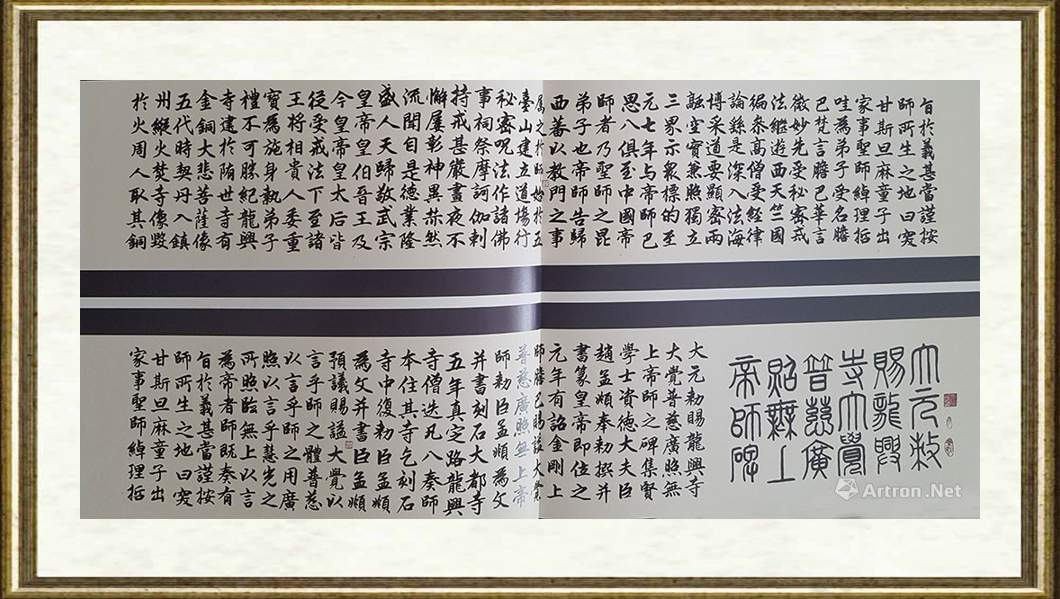 旨於義甚當謹按
師所生之地曰突
甘斯旦麻童子出
家事聖師綽理哲
哇為弟子受名膽
巴梵言膽巴華言
微妙先受秘密戒
法繼遊西天竺國
徧叅高僧受經律
論繇是深入法海
博采道要顯密兩
融空實兼照獨立
三界示眾標的至
元七年与帝師巴
思八俱至中國帝
師者乃聖師之昆
弟子也帝師告歸
西蕃以教門之事
屬之於師始於五
臺山建立道場行
秘密呪法作諸佛
事祠祭摩訶伽剌
持戒甚嚴晝夜不
懈屢彰神異赫然
流聞自是德業隆
盛人天歸敬武宗
皇帝皇伯晉王及
今皇帝皇太后皆
從受戒法下至諸
王將相貴人委重
寶為施身執弟子
禮不可勝紀龍興
寺建於隋世寺有
金銅大悲菩薩像
五代時契丹入鎮
州縱火焚寺像毀
於火周人取其銅
大元敕
賜龍興
寺大覺
普慈廣
照無上
帝師碑
大元勅賜龍興寺
大覺普慈廣照無
上帝師之碑集賢
學士資德大夫臣
趙孟頫奉勅撰并
書篆皇帝即位之
元年有詔金剛上
師膽巴賜謚大覺
普慈廣照無上帝
師勅臣孟頫為文
并書刻石大都寺
五年真定路龍興
寺僧迭凡八奏師
本住其寺乞刻石
寺中復勅臣孟頫
為文并書臣孟頫
預議賜謚大覺以
言乎師之體普慈
以言乎師之用廣
照以言乎慧光之
所照臨無上以言
為帝者師既奏有
旨於義甚當謹按
師所生之地曰突
甘斯旦麻童子出
家事聖師綽理哲
Artron.Net